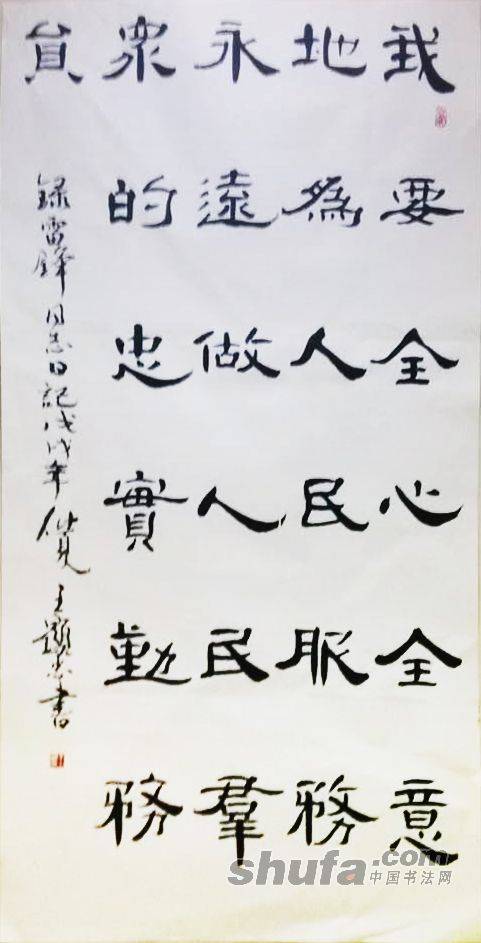 我要全心全意
地為人民服務
永遠做人民羣
衆的忠實勤務
員
録雷鋒同志日記戊戌年
王顯忠書
shufa.com
中国书法网